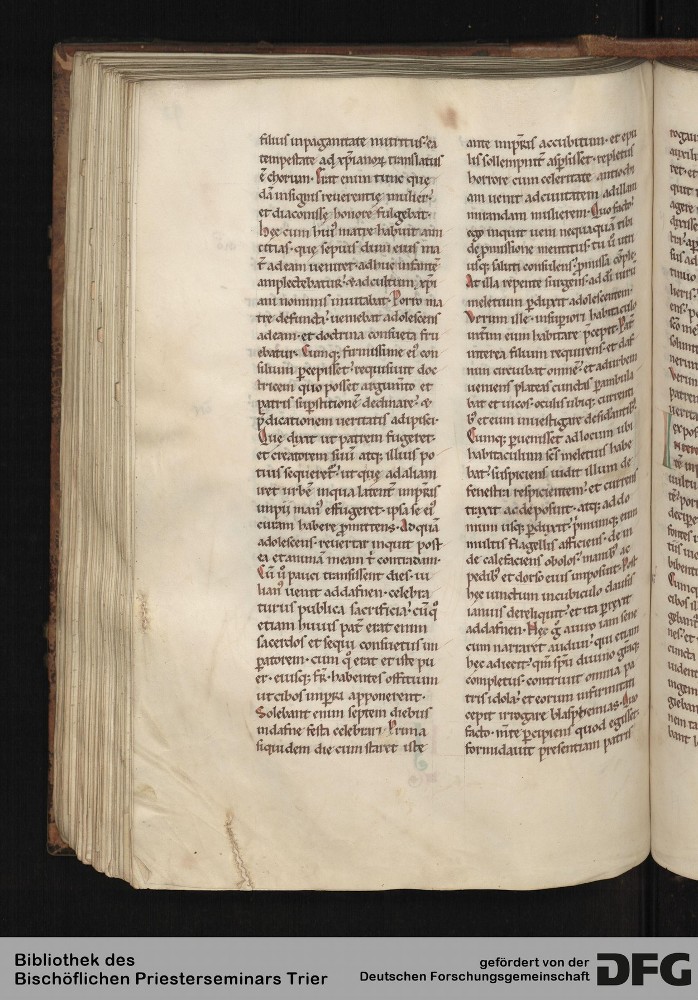 filius in paganitate nutritus· ea
tempestate ad xp̄ianorū translatus
ē chorum· Erat enim tunc que
dā insignis reuerentie mulier·
et diaconisse honore fulgebat·
hęc cum hui᷒ matre habuit ami
citias· que sepius dum eius ma
t̄ ad eam ueniret· adhuc infantē
amplectebatur· & ad cultum xp̄i
ani nominis inuitabat· Porro ma
tre defuncta· ueniebat adolescens
ad eam· et doctrina consueta fru
ebatur· Cumq; firmissime ei᷒ con
silium p̄cepisset· requisiuit doc
tricem quo posset argum̄to et
patris sup̄stitionē declinare· &
p̄dicationem ueritatis adipisci·
Que dixit ut patrem fugeret·
et creatorem suū atq; illius po
tius sequeret̄· ut que ad aliam
iret urbē in qua latent̄ imp̄ris
impii man᷒ effugeret· ipsa se ei᷒
curam habere p̄mittens· Ad quā
adolescens· reuertar inquit post
ea et animā meam t̄ contindam·
Cū ū pauci transissent dies· iu
lian᷒ uenit ad dafnen· celebra
turus publica sacrificia· cū q᷒
etiam huius pat̄ erat enim
sacerdos et sequi consuetus im
p̄atorem· cum q᷒ erat et iste pu
er· eiusq; fr̄· habentes offitium
ut cibos imp̄ri apponerent·
Solebant enim septem diebus
in dafne festa celebrari· Prima
siquidem die cum staret iste
ante imp̄ris accubitum· et epu
lis sollempnit̄ asp̄sisset· repletus
horrore cum celeritate antiochi
am uenit ad ciuitatem ad illam
mirandam mulierem· Quo facto·
ego inquit ueni nequaquā tibi
de p̄missione mentitus· tu ū uti
usq; saluti consulens· p̄missa cōple·
At illa repente surgens· ad dī uirū
meletium p̄duxit adolescentem·
Verum ille· in sup̄iori habitaculo
int̄im eum habitare p̄cepit· Pat̄
interea filium requirens· et daf
nin circuibat omnē· et ad urbem
ueniens plateas cunctas p̄ambula
bat et uicos· oculis ubiq; currenti
b᷒ et eum inuestigare desidantib᷒·
Cumq; p̄uenisset ad locum ubi
habitaculum sc̄i meletius habe
bat· suspiciens uidit illum de
fenestra respicientem· et currens
traxit ac deposuit· atq; ad do
mum usq; p̄duxit· primumq; eum
multis flagellis afficiens· de in
de calefaciens obolos· manib᷒ ac
pedib᷒ et dorso eius imposuit· Post
hęc uinctum in cubiculo clausis
ianuis dereliquit· et ita p̄rexit
ad dafnen· Hęc g̊ a uiro iam sene
cum narraret audiui· qui etiam
hęc adiecit· qm̄ sp̄u diuino quoq;
completus· contriuit omnia pa
tris idola· et eorum infirmitati
cepit irrogare blasphemias· Quo
facto· m̄te p̄cipiens quod egisset·
formidauit presentiam patris
Bibliothek des
Bischöflichen Priesterseminars Trier
gefördert von der
Deutschen Forschungsgemeinschaft
DFG